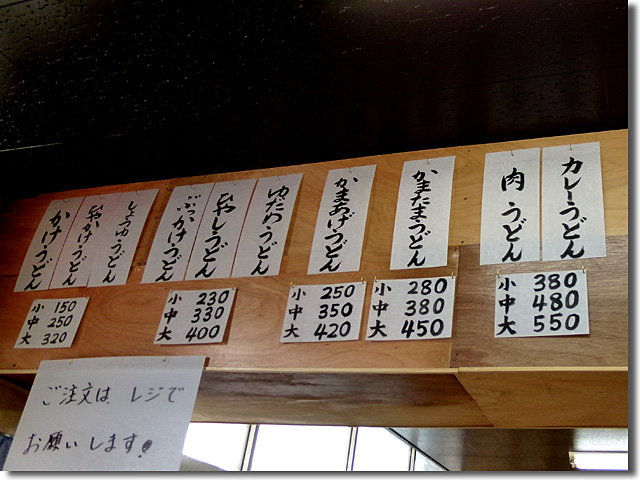 かけうどん
ひやかけうどん
しょうゆうどん
小 150
中 250
大 320
ぶっかけうどん
ひやしうどん
ゆだめうどん
小 230
中 330
大 400
かまあげうどん
小 250
中 350
大 420
かまたまうどん
小 280
中 380
大 450
肉うどん
カレーうどん
小 380
中 480
大 550
ご注文は、レジで
お願いします!